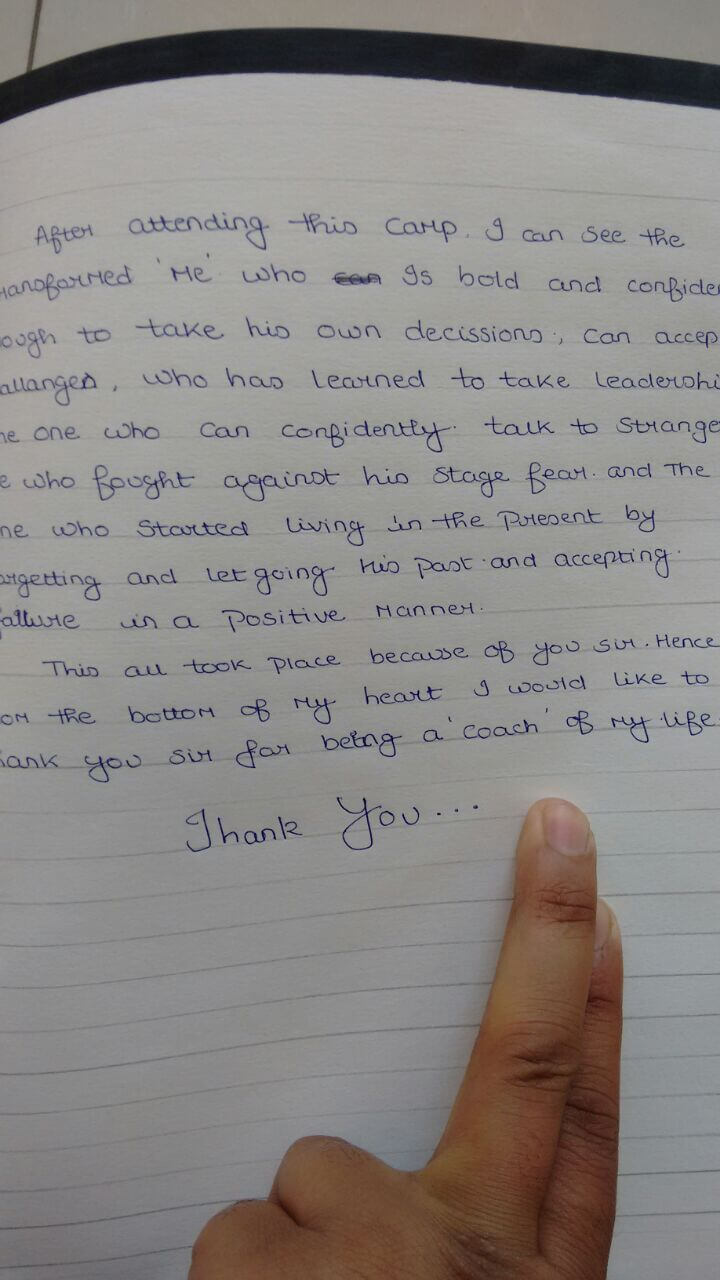 After attending this camp. I can see the
ransformed 'Me' who can Is bold and confide
ough to take his own decissions, can accep
allanges, who has learned to take leadershi
he one who can confidently talk to strange
e who fought against his stage fear. and The
ne who started living in the present by
orgetting and let going his past and accepting
failure in a positive manner.
This all took place because of you sir. Hence
om the bottom of my heart I would like to
hank you sir for being a 'coach' of my life.
Thank You...